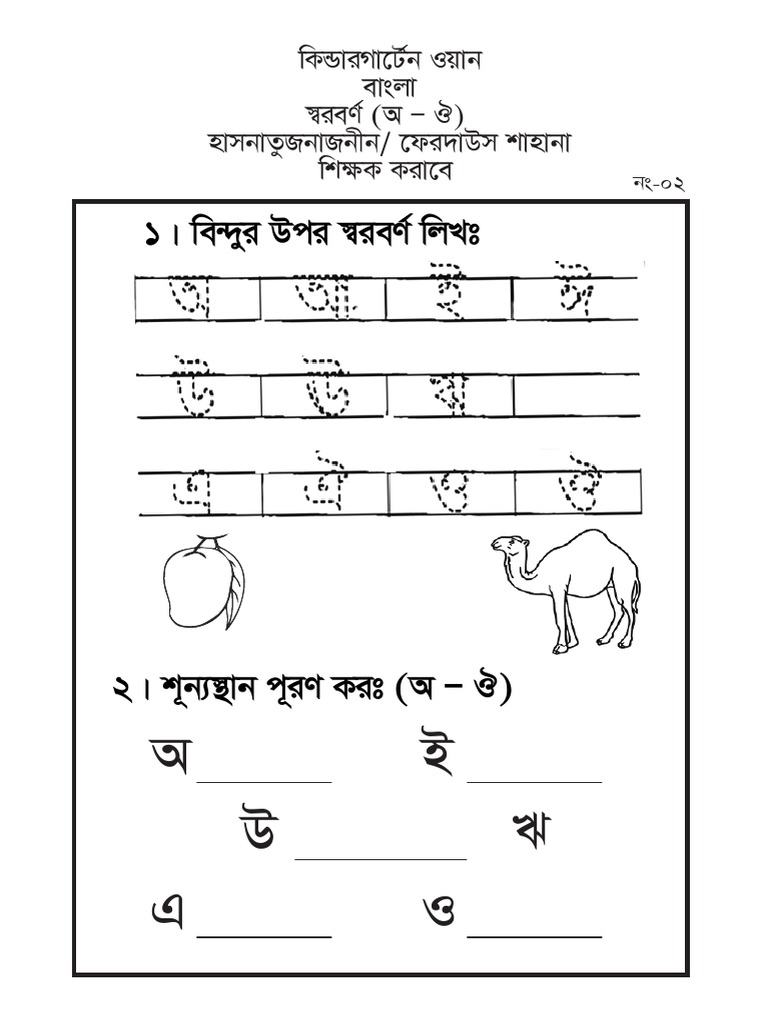 কিন্ডারগার্টেন ওয়ান
বাংলা
স্বরবর্ণ (অ – ঔ)
হাসনাতুজনাজনীন/ ফেরদাউস শাহানা
শিক্ষক করাবে
নং-০২
১। বিন্দুর উপর স্বরবর্ণ লিখঃ
অ আ ই ঈ
উ ঊ ঋ
এ ঐ ও ঔ
২। শূন্যস্থান পূরণ করঃ (অ – ঔ)
অ ________ ই ________
উ __________ ঋ
এ ________ ও ________